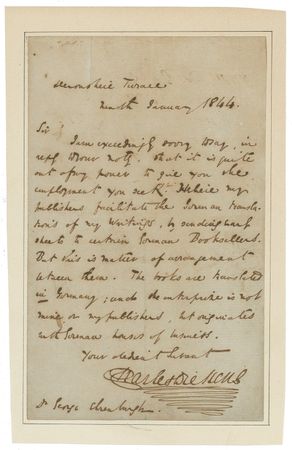 Devonshire Terrace
Tenth January 1844.
Sir
I am exceedingly sorry to say, in
reply to your note, that it is quite
out of my power to give you the
employment you seek. I believe my
publishers facilitate the German transla-
tions of my writings, by sending
sheets to certain German Booksellers.
But this is matter of arrangement
between them. The books are translated
in Germany; and the enterprize is not
mine or my publishers, but originates
with German houses of business.
Your obedient Servant
Charles Dickens
Dr George